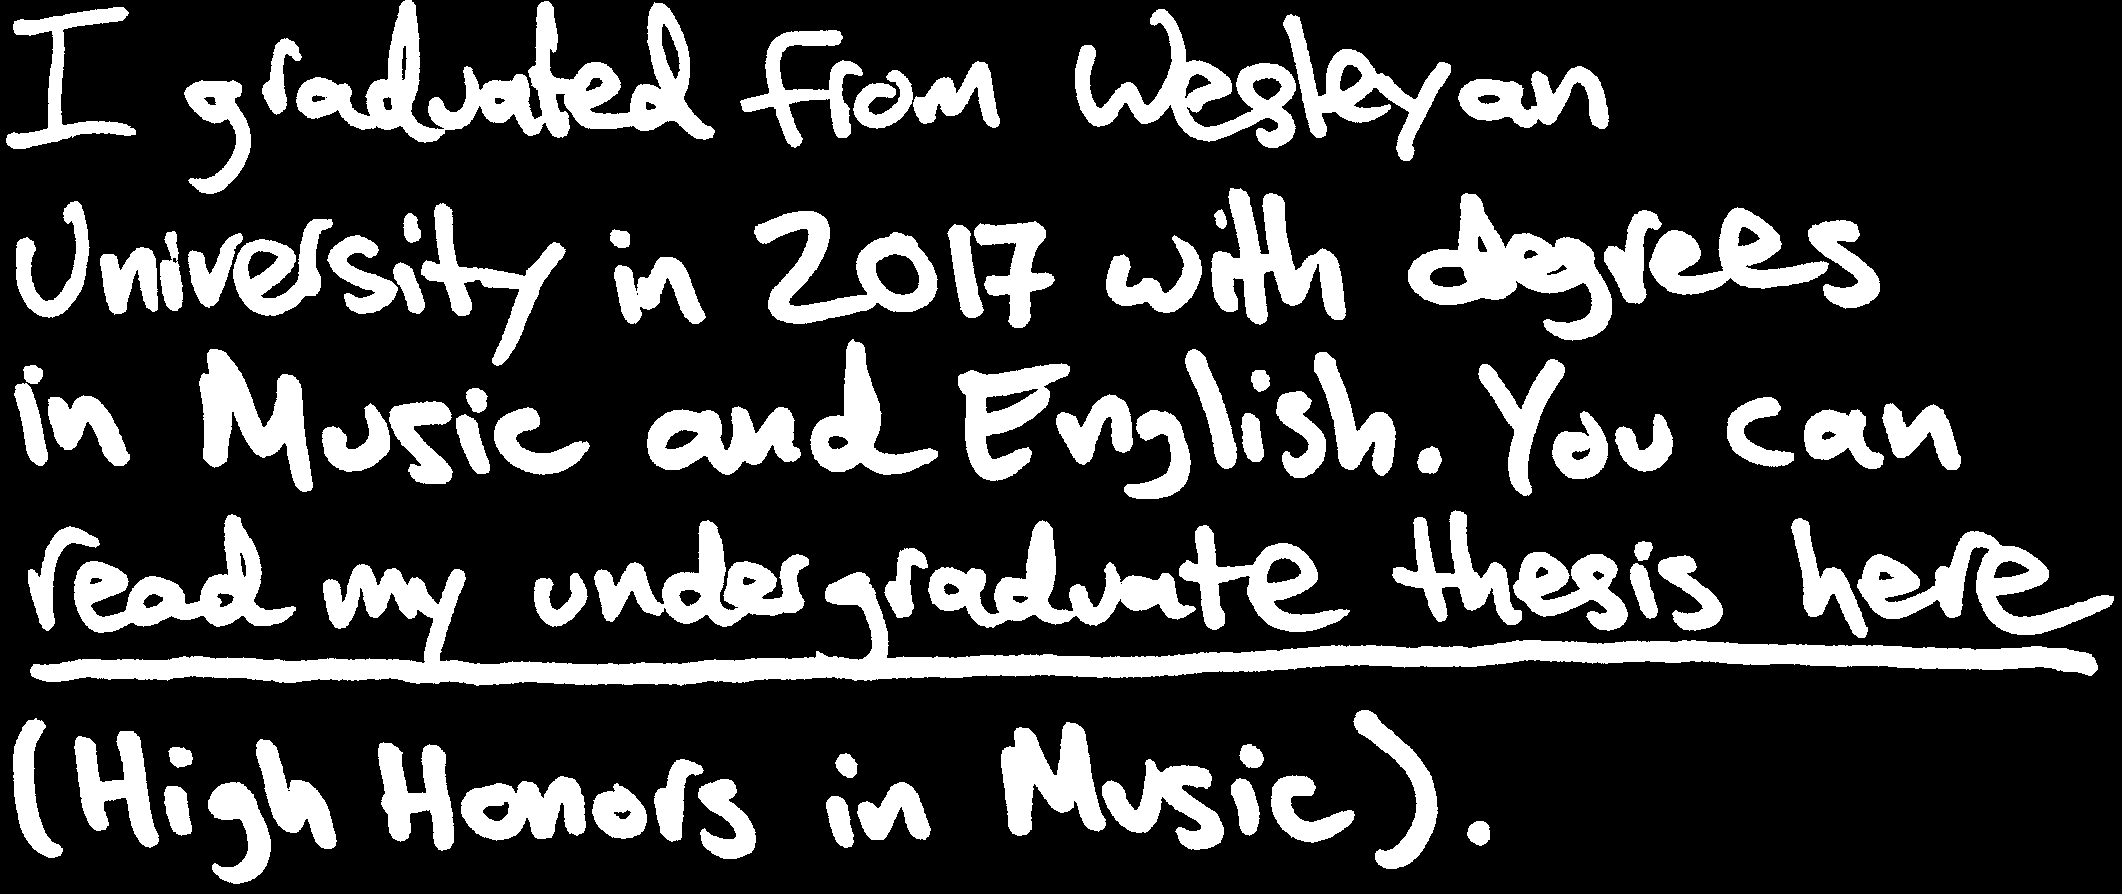 I graduated from Wesleyan
University in 2017 with degrees
in Music and English. You can
read my undergraduate thesis here
(High Honors in Music).